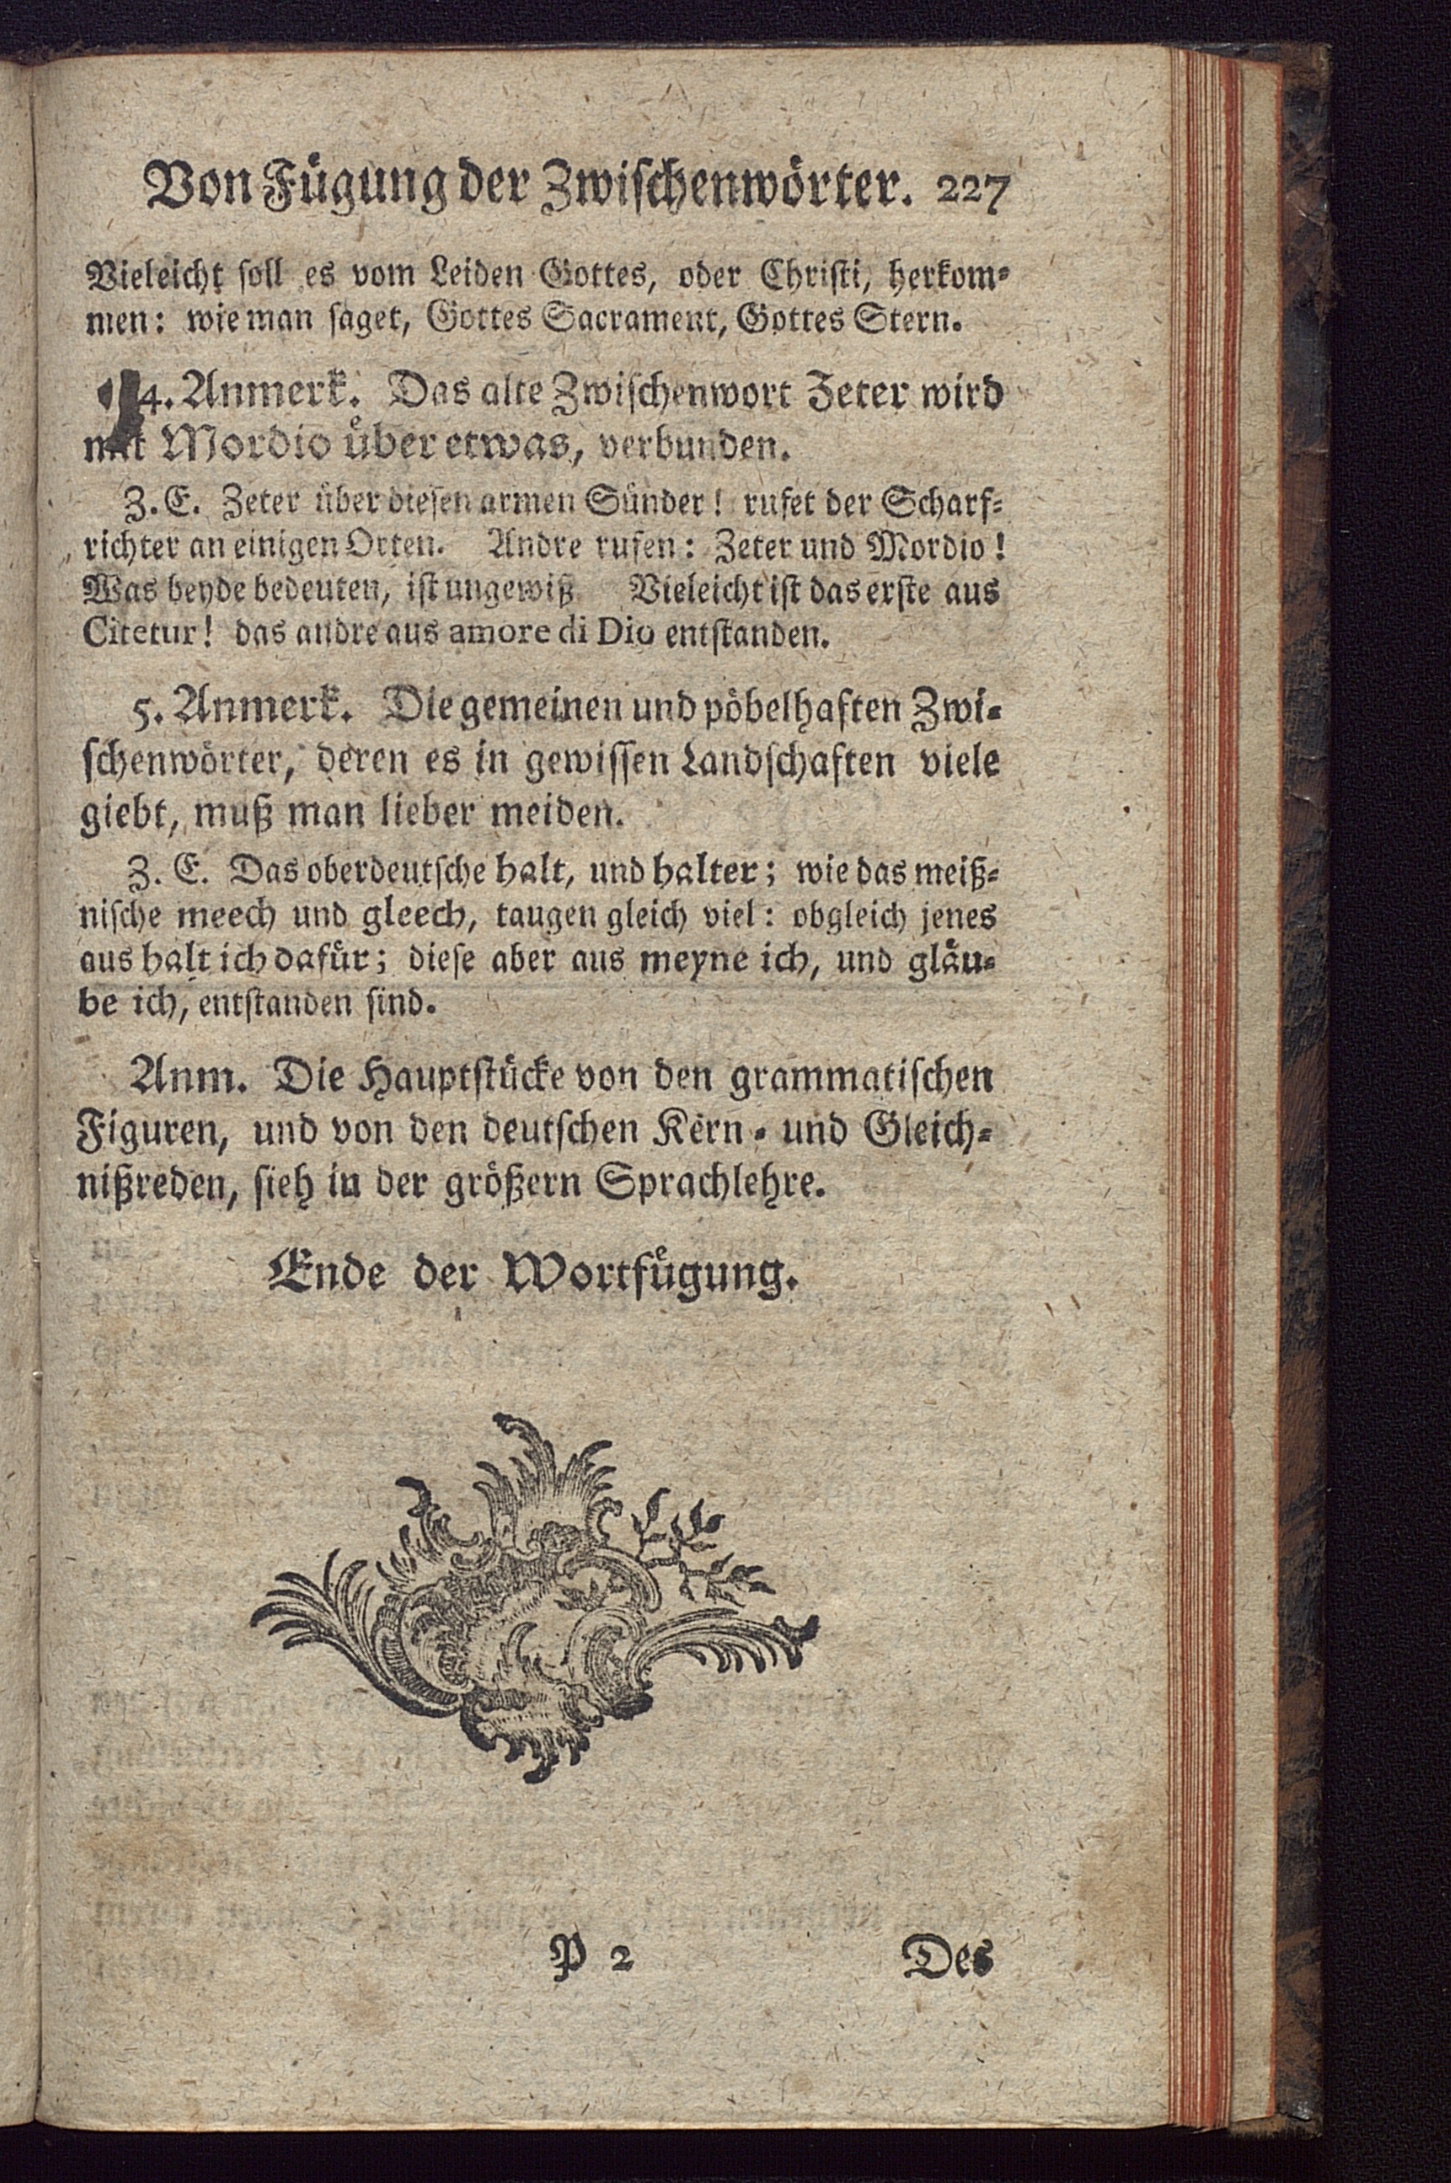 Von Fügung der Zwischenwörter. 227
Vieleicht soll es vom Leiden Gottes, oder Christi, herkom-
men: wie man saget, Gottes Sacrament, Gottes Stern.
4. Anmerk. Das alte Zwischenwort Zeter wird
mit Mordio über etwas, verbunden.
Z. E. Zeter über diesen armen Sünder! rufet der Scharf-
richter an einigen Orten. Andre rufen: Zeter und Mordio!
Was beyde bedeuten, ist ungewiß Vieleicht ist das erste aus
Citetur! das andre aus amore di Dio entstanden.
5. Anmerk. Die gemeinen und pöbelhaften Zwi-
schenwörter, deren es in gewissen Landschaften viele
giebt, muß man lieber meiden.
Z. E. Das oberdeutsche halt, und halter; wie das meiß-
nische meech und gleech, taugen gleich viel: obgleich jenes
aus halt ich dafür; diese aber aus meyne ich, und gläu-
be ich, entstanden sind.
Anm. Die Hauptstücke von den grammatischen
Figuren, und von den deutschen Kern- und Gleich-
nißreden, sieh in der größern Sprachlehre.
Ende der Wortfügung.
P 2 Des